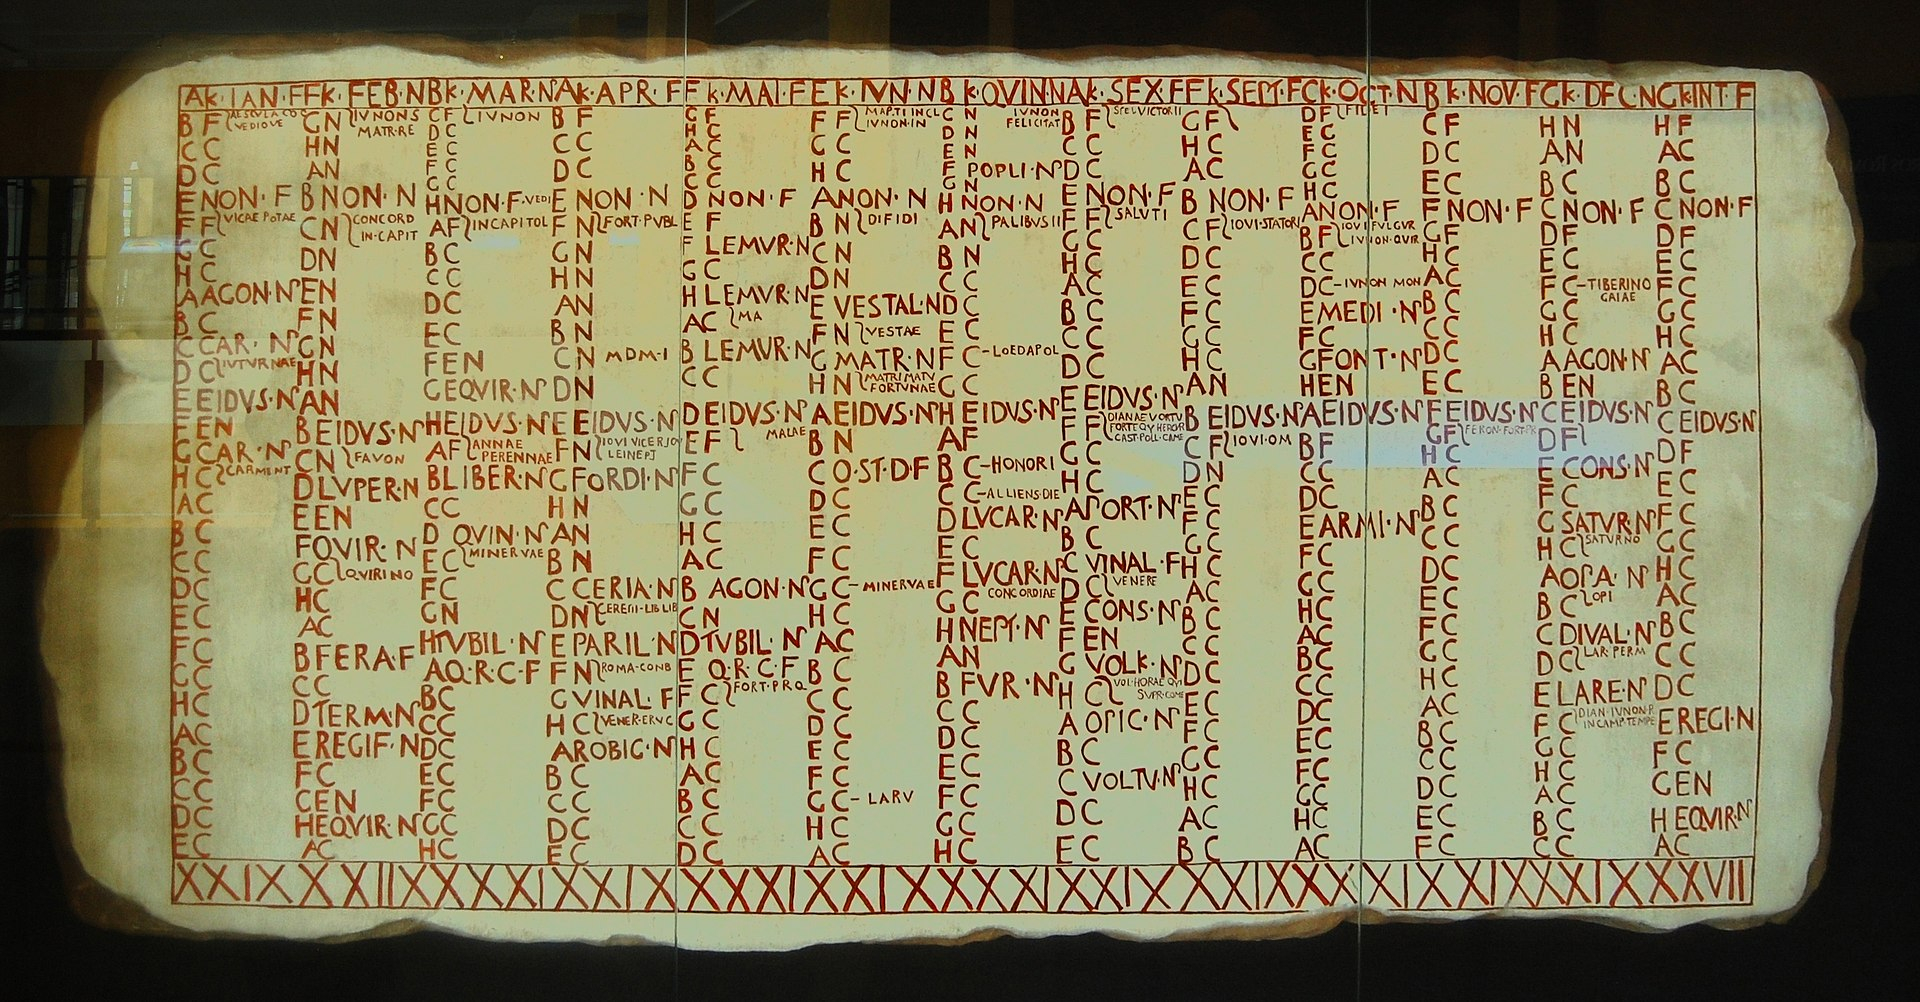 AK·IAN·F FK·FEB·N BK·MAR·N AK·APR·F FK·MAI·F EK·IVN·N BK·QVIN·N AK·SEX·F FK·SEPT·F CK·OCT·N BK·NOV·F GK·DEC·N GK·INT·F
B F AESCVLA CO
VEDIOVE
C C
D C
E NON·F
F F VICAE POTAE
G C
H C
A AGON·N
B C
C CAR·N
D C IVTVRNAE
E EIDVS·N
F EN
G CAR·N
H C CARMENT
A C
B C
C C
D C
E C
F C
G C
H C
A C
B C
C C
D C
E C
XXIX
G N IVNONS
MATR·RE
H N
A N
B NON·N
C N CONCORD
IN·CAPIT
D N
E N
F N
G N
H N
A N
B EIDVS·N
C N FAVON
D LVPER·N
E EN
F QVIR·N
G C QVIRINO
H C
A C
B FERA·F
C C
D TERM·N
E REGIF·N
F C
G EN
H EQVIR·N
A C
XXVIII
C F IVNON
D C
E C
F C
G C
H NON·F VEDI
A F IN CAPITOL
B C
C C
D C
E C
F EN
G EQVIR·N
H EIDVS·N
A F ANNAE
PERENNAE
B LIBER·N
C C
D QVIN·N
E C MINERVAE
F C
G N
H TVBIL·N
A Q·R·C·F
B C
C C
D C
E C
F C
G C
H C
XXXI
B F
C C
D C
E NON·N
F N FORT·PVBL
G N
H N
A N
B N
C N MDM·I
D N
E EIDVS·N
F N IOVI VICER IOV
LEINEPJ
G FORDI·N
H N
A N
B N
C CERIA·N
D N CERERI·LIB LIB
E PARIL·N
F N ROMA·COND
G VINAL·F
H C VENER·ERVC
A ROBIG·N
B C
C C
D C
E C
XXIX
G F
H C
A C
B C
C C
D NON·F
E F
F LEMVR·N
G C
H LEMVR·N
A C MA
B LEMVR·N
C C
D EIDVS·N
E F MAIAE
F C
G C
H C
A C
B AGON·N
C N
D TVBIL·N
E Q·R·C·F
F C FORT·P·R·Q
G C
H C
A C
B C
C C
D C
XXXI
F F MAR·TI IN CL
IVNON·IN
G C
H C
A NON·N
B N DIFIDI
C N
D N
E VESTAL·N
F N VESTAE
G MATR·N
H N MATRI MATV
FORTVNAE
A EIDVS·N
B N
C Q·ST·D·F
D C
E C
F C
G C MINERVAE
H C
A C
B C
C C
D C
E C
F C
G C LARV
H C
A C
XXIX
C N IVNON
FELICITAT
D N
E N
F POPLI·N
G N
H NON·N
A N PALIBVS II
B N
C C
D C
E C
F C LOEDAPOL
G C
H EIDVS·N
A F
B C HONORI
C C ALLIENS·DIE
D LVCAR·N
E C
F LVCAR·N
G C CONCORDIAE
H NEPT·N
A N
B FVR·N
C C
D C
E C
F C
G C
H C
XXXI
B F SPEI VICTOR II
C C
D C
E NON·F
F F SALVTI
G C
H C
A C
B C
C C
D C
E EIDVS·N
F F DIANAE VORTV
FORTE QV HERQR
CAST·POLL·CAME
G C
H C
A PORT·N
B C
C VINAL·F
D C VENERE
E CONS·N
F EN
G VOLK·N
H C
A OPIC·N
B C
C VOLTV·N
D C
E C
XXIX
G F
H C
A C
B NON·F
C F IOVI·STATORI
D C
E C
F C
G C
H C
A N
B EIDVS·N
C F IOVI·OM
D N
E C
F C
G C
H C
A C
B C
C C
D C
E C
F C
G C
H C
A C
B C
XXIX
D F FIDEI
E C
F C
G C
H C
A NON·F
B F IOVI FVLGVR
IVNON·QVIR
C C
D C IVNON MON
E MEDI·N
F C
G FONT·N
H EN
A EIDVS·N
B F
C C
D C
E ARMI·N
F C
G C
H C
A C
B C
C C
D C
E C
F C
G C
H C
A C
XXXI
C F
D C
E C
F NON·F
G F
H C
A C
B C
C C
D C
E C
F EIDVS·N
G F FERON·FORT·PR
H C
A C
B C
C C
D C
E C
F C
G C
H C
A C
B C
C C
D C
E C
F C
XXIX
H N
A N
B C
C NON·F
D F
E C
F C TIBERINO
GAIAE
G C
H C
A AGON·N
B EN
C EIDVS·N
D F
E CONS·N
F C
G SATVR·N
H C SATVRNO
A OPA·N
B C OPI
C DIVAL·N
D C LAR·PERM
E LARE·N
F C DIAN·IVNON·R
IN CAMP·TEMPE
G C
H C
A C
B C
C C
XXIX
H F
A C
B C
C NON·F
D F
E C
F C
G C
H C
A C
B C
C EIDVS·N
D F
E C
F C
G C
H C
A C
B C
C C
D C
E REGI·N
F C
G EN
H EQVIR·N
A C
XXVII